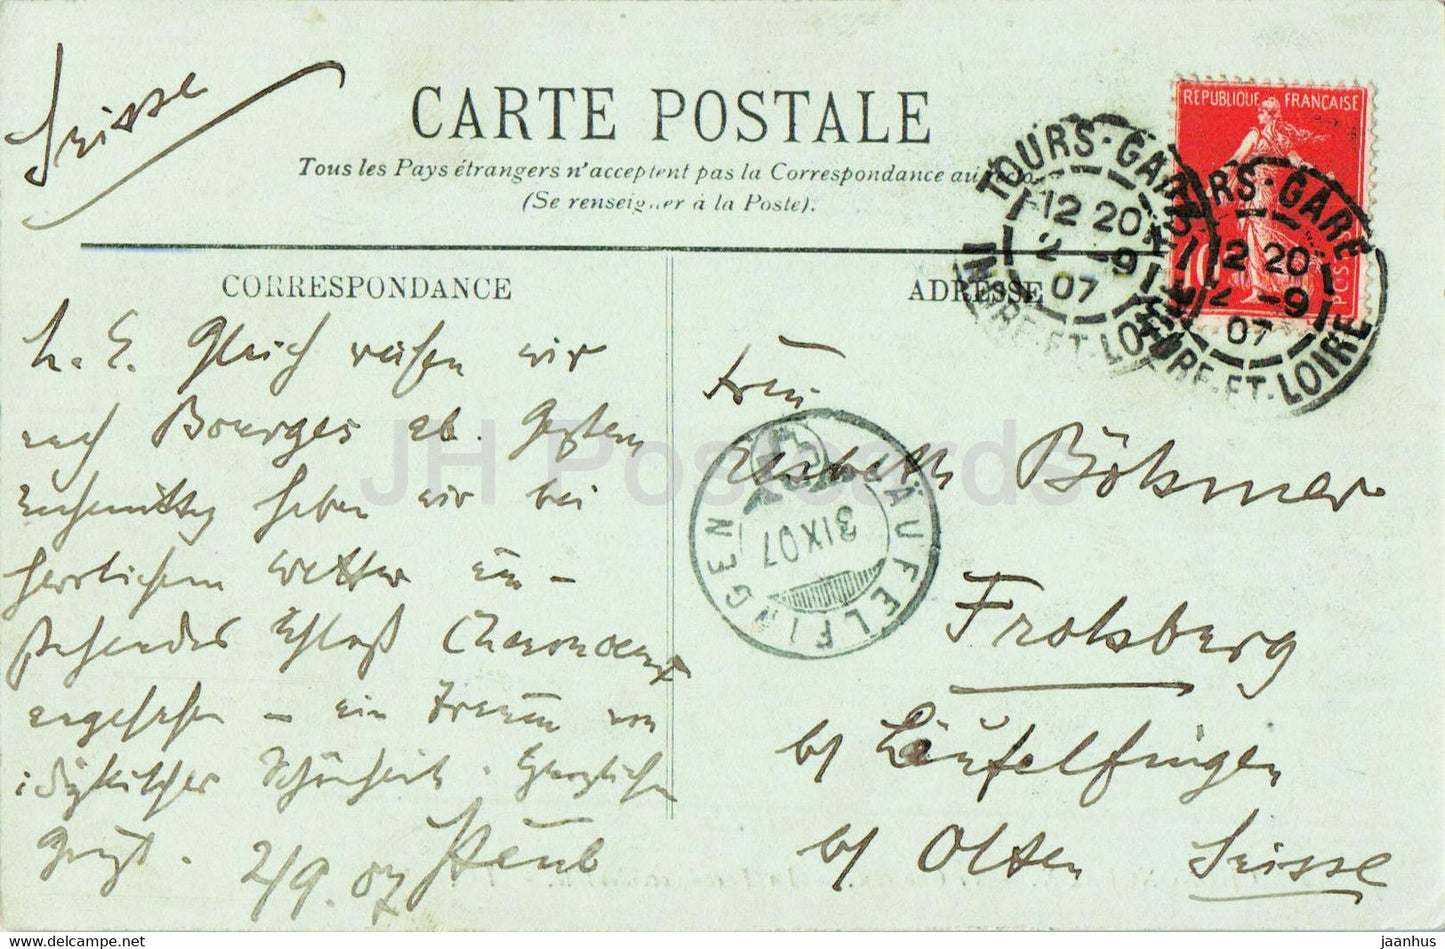 Suisse
CARTE POSTALE
Tous les Pays étrangers n'acceptent pas la Correspondance au recto
(Se renseigner à la Poste).
REPUBLIQUE FRANÇAISE
10
POSTES
TOURS-GARE
12 20
2 -9
07
INDRE-ET-LOIRE
TOURS-GARE
12 20
2 -9
07
INDRE-ET-LOIRE
CORRESPONDANCE
L. E. Gleich reisen wir
nach Bourges ab. Gestern
nachmittag haben wir bei
herrlichem Wetter
Schloß Chenonceaux
angesehen – ein Traum von
idyllischer Schönheit. Herzlichen
Gruß.
2/9. 07
ADRESSE
Frau
Elisabeth Böhmer
Frohberg
b/ Läufelfingen
b/ Olten Suisse
LÄUFELFINGEN
3 IX 07
JH Postcards
hansa.net
jaanhus